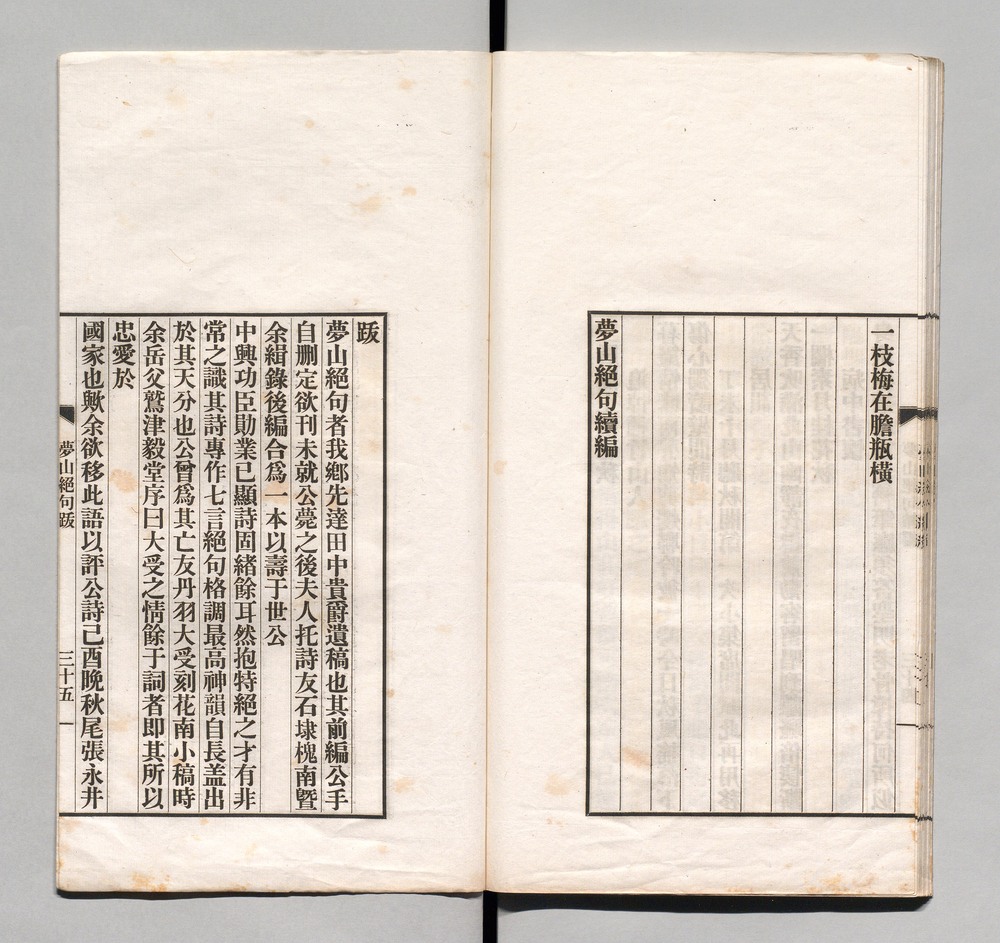 一枝梅在膽瓶橫
夢山絕句續編
跋
夢山絕句者我鄕先達田中貴爵遺稿也其前編公手
自刪定欲刊未就公薨之後夫人托詩友石埭槐南曁
余緝錄後編合爲一本以壽于世公
中興功臣勛業已顯詩固緖餘耳然抱特絕之才有非
常之識其詩專作七言絕句格調最高神韻自長盖出
於其天分也公曾爲其亡友丹羽大受刻花南小稿時
余岳父鷲津毅堂序曰大受之情餘于詞者即其所以
忠愛於
國家也歟余欲移此語以評公詩己酉晚秋尾張永井
夢山絕句跋
三十五